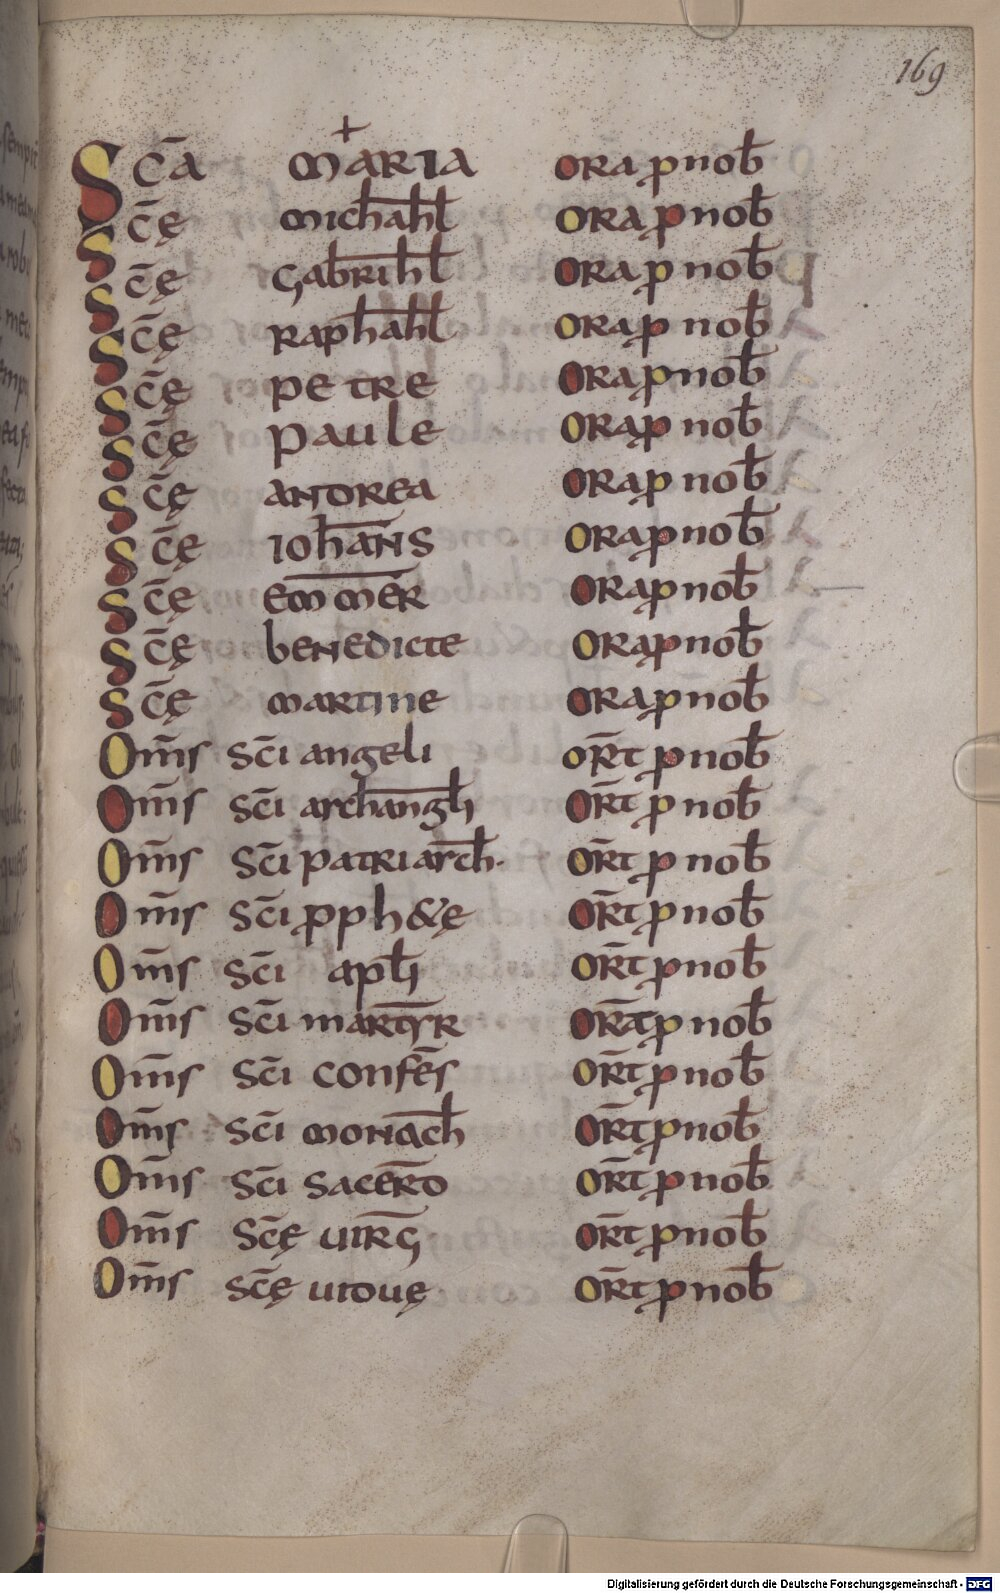 169
Sc̄a maria ora p nob̄
Sc̄ę michah̄l ora p nob̄
Sc̄ę gabrih̄l ora p nob̄
Sc̄ę raphah̄l ora p nob̄
Sc̄ę petre ora p nob̄
Sc̄ę paule ora p nob̄
Sc̄ę andrea ora p nob̄
Sc̄ę iohān̄s ora p nob̄
Sc̄ę em̄mer̄ ora p nob̄
Sc̄ę benedicte ora p nob̄
Sc̄ę martine ora p nob̄
Om̄s sc̄i angeli or̄t p nob̄
Om̄s sc̄i archangl̄i or̄t p nob̄
Om̄s sc̄i patriarch̄. or̄t p nob̄
Om̄s sc̄i pph&ę or̄t p nob̄
Om̄s sc̄i apl̄i or̄t p nob̄
Om̄s sc̄i martȳr or̄at p nob̄
Om̄s sc̄i confes̄ or̄t p nob̄
Om̄s sc̄i monach̄ or̄t p nob̄
Om̄s sc̄i sacer̄d or̄t p nob̄
Om̄s sc̄ę uir̄g or̄t p nob̄
Om̄s sc̄ę uiduę or̄t p nob̄
Digitalisierung gefördert durch die Deutsche Forschungsgemeinschaft - DFG